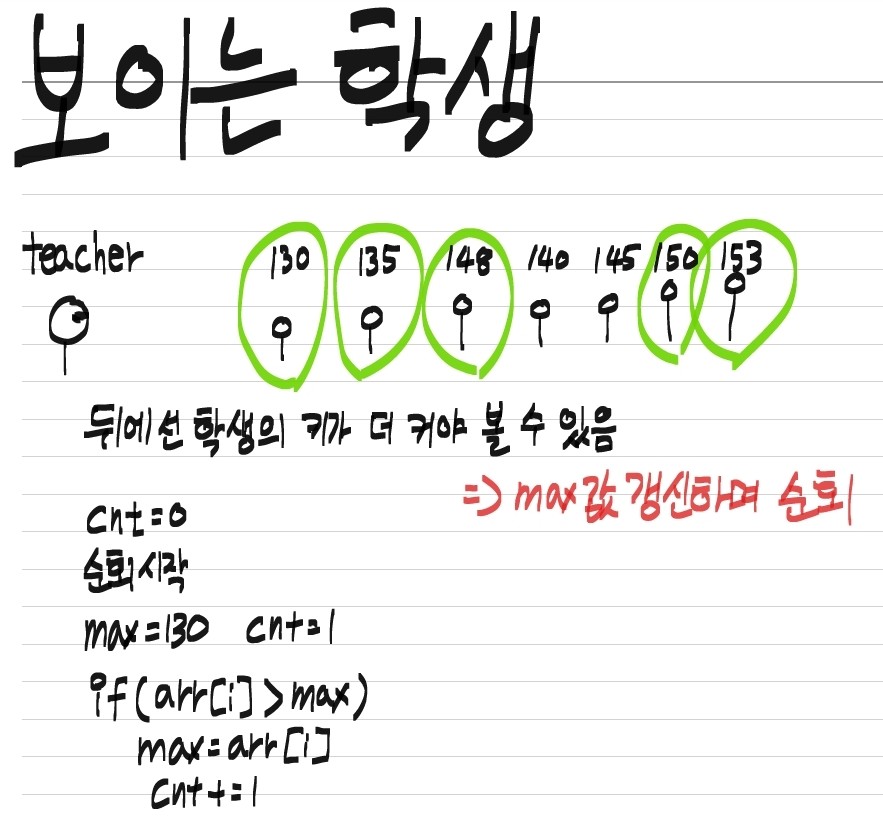 보이는 학생
teacher 130 135 148 140 145 150 153
뒤에 선 학생의 키가 더 커야 볼 수 있음
=> max값 갱신하며 순회
cnt=0
순회시작
max=130 cnt=1
if(arr[i]>max)
max=arr[i]
cnt+=1